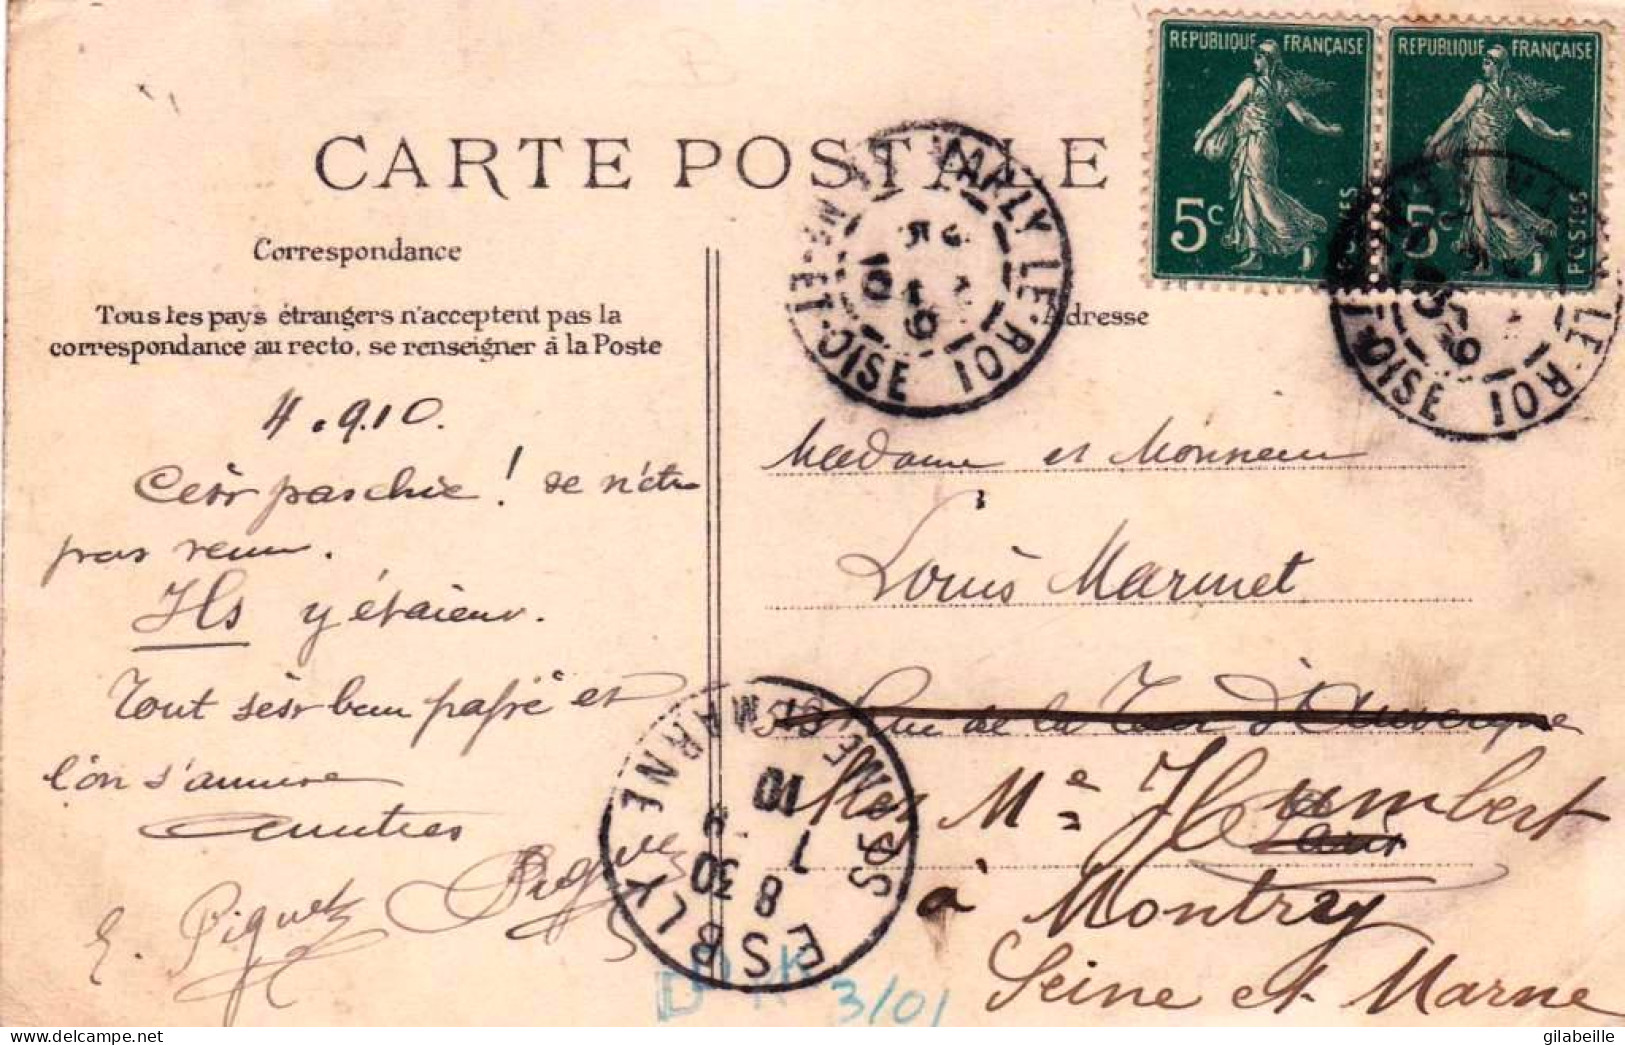 REPUBLIQUE FRANÇAISE
REPUBLIQUE FRANÇAISE
5c
5c POSTES
CARTE POSTALE
MARLY-LE-ROI
10
ET-OISE
LE-ROI
OISE
Correspondance
Adresse
Tous les pays étrangers n'acceptent pas la
correspondance au recto, se renseigner à la Poste
4.9.10.
C'est pas chic! de n'être
pas venu.
Ils y étaient.
Tout s'est bien passé et
l'on s'amuse
E. Piquet
Madame et Monsieur
Louis Marmet
Rue de la Tour d'Auvergne
Me Humbert
à Montry
Seine et Marne
ESBLY
SEINE ET MARNE
8 30
10
3/01
gilabeille